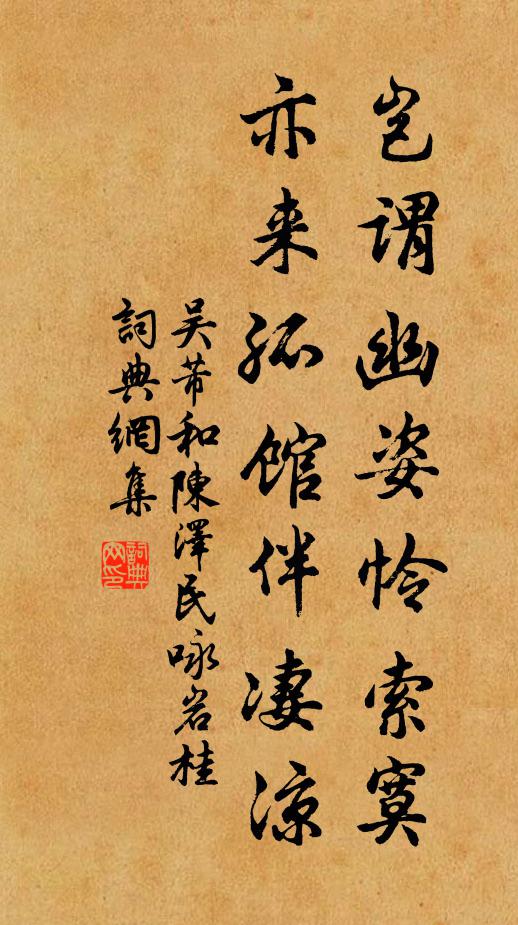 岂谓幽姿怜索寞
亦来孤馆伴凄凉
吴芾和陳澤民咏岩桂
詞典網集
詞典网印